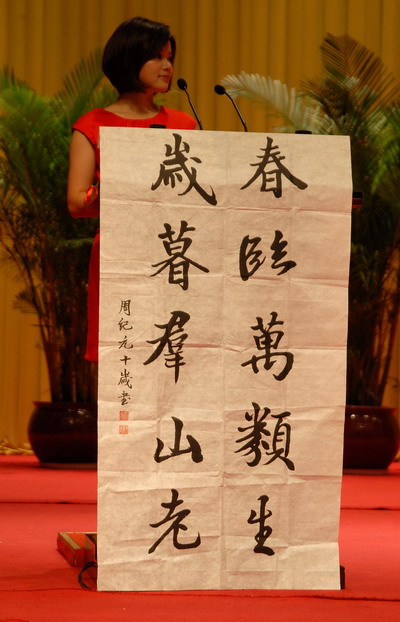 春臨萬類生
歲暮羣山老
周紀元十歲書